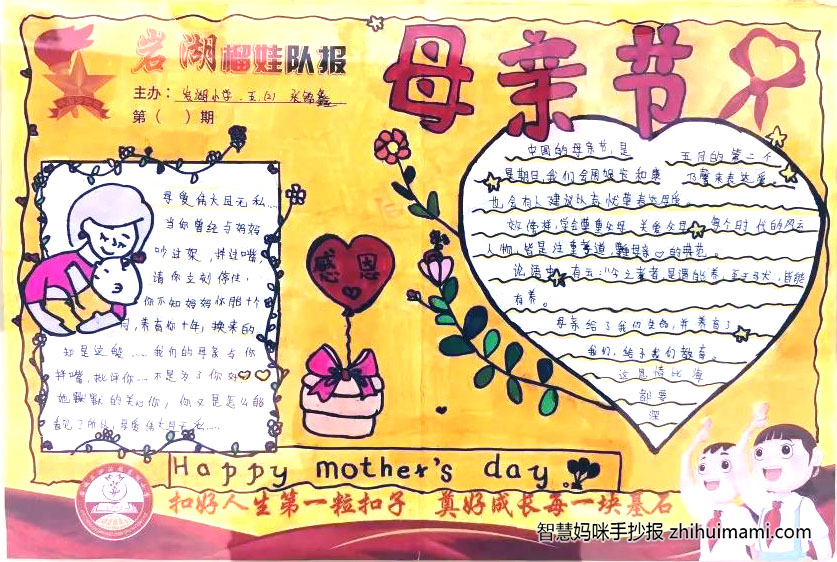 岩湖榴娃队报
母亲节
主办：岩湖小学 五(2)
第（ ）期
母爱伟大且无私....
当你曾经与妈妈
吵过架，拌过嘴，
请你立刻停住，
你不知妈妈怀胎十个
月，养育你十年；换来的
却是这般.....我们的母亲与你
拌嘴，批评你...不是为了你好
她默默的关心你，你又是怎么能
母爱伟大且无私.....
感恩
中国的母亲节，是 五月的第二个
星期日，我们会用
也会有人建议以萱忘忧草表达母爱。
效佛禅，学会尊重父母，关爱父母 每个时代的风云
人物，皆是注重孝道 的典范。
论语中 有云："今之孝者是谓能养 至于犬，皆能
有养。
母亲给了我们生命，并养育了
我们，给予我们教育。
这恩情比海
都要
深
Happy mother's day
扣好人生第一粒扣子 奠好成长每一块基石
智慧妈咪手抄报 zhihuimami.com